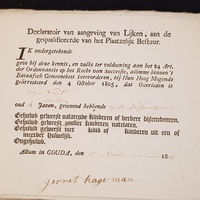 Declaratoir van aangeving van Lijken, aan de
gequalificeerde van het Plaatzelijk Bestuur.
IK ondergetekende
geve bij dezen kennis, en zulks ter voldoening aan het 24 Art.
der Ordonnantie op het Recht van Successie, alömme binnen 't
Bataafsch Gemeenebest intevoeren, bij Hun Hoog Mogende
gearresteerd den 4 October 1805, dat Overleden is
oud Jaaren, gewoond hebbende
Gehuwd geweest nalatende kinderen of verdere bijstenden.
Gehuwd geweest zonder kinderen natelaten.
Gehuwd geweest met kind of kinderen uit een of
meerder Huwelijk.
Ongehuwd.
Actum in GOUDA, den 18
gerret hageman